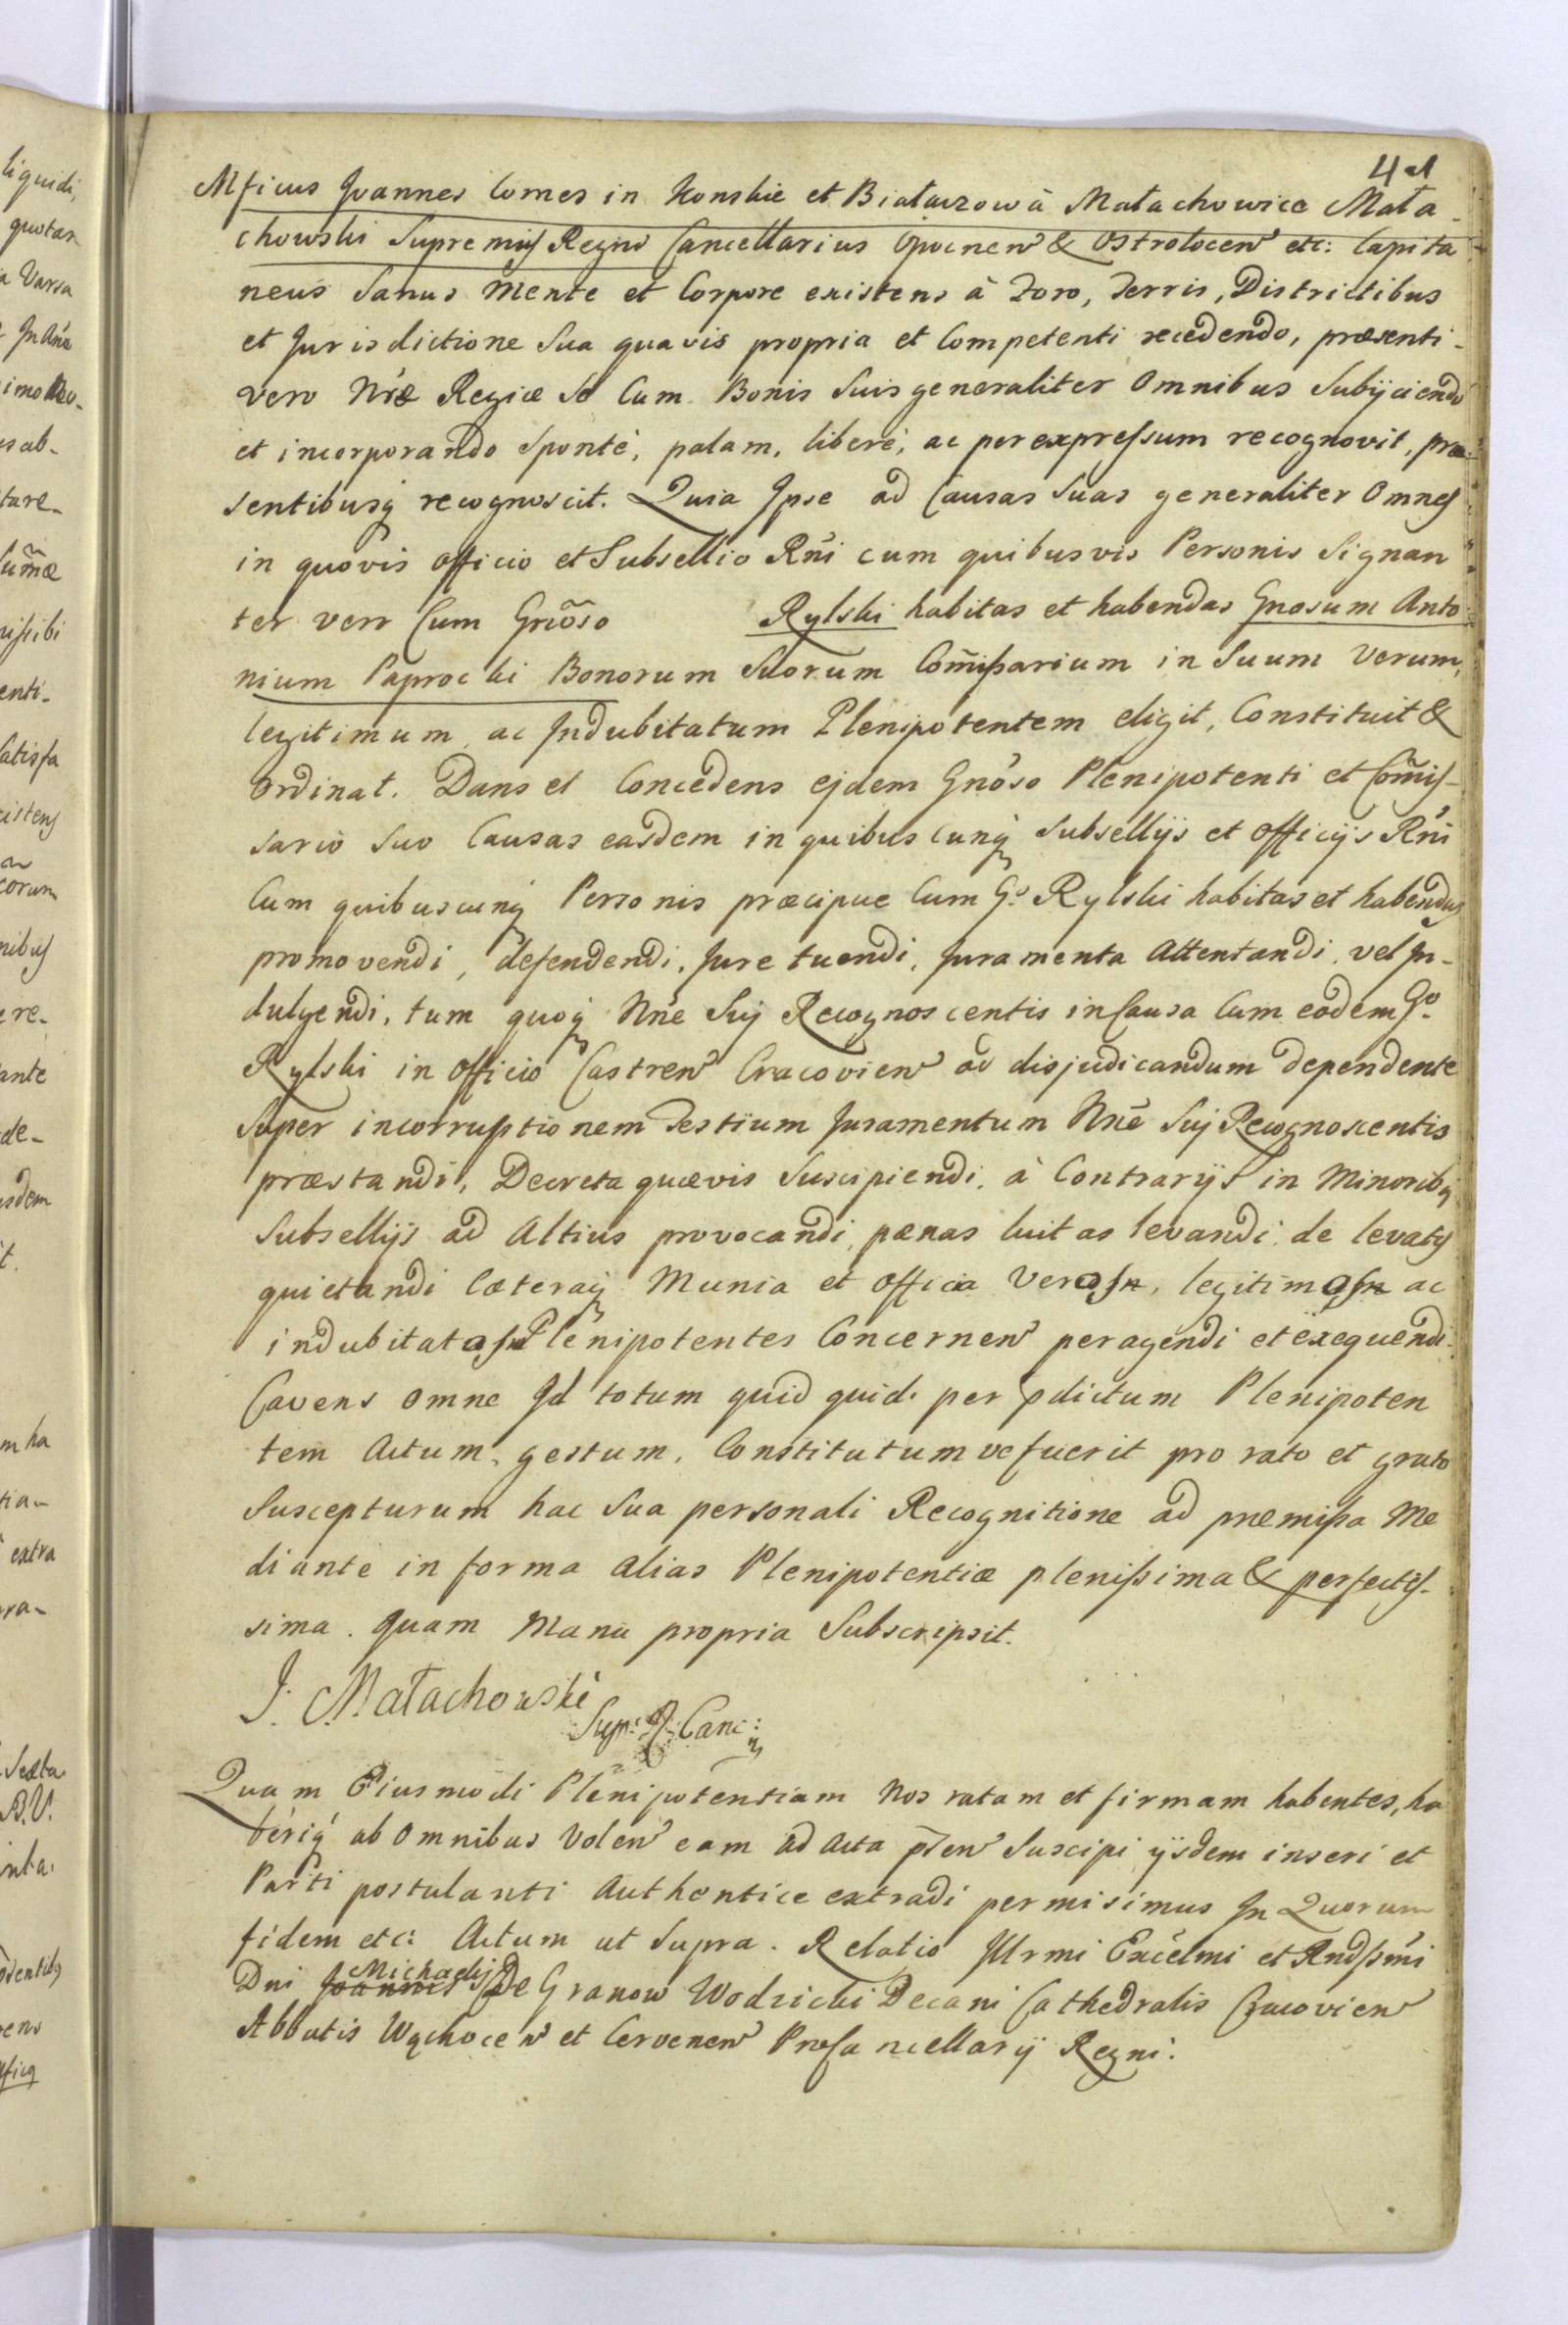 41
Mficus Joannes Comes in Konskie et Białaczow à Małachowice Mała-
chowski Supremus Regni Cancellarius Opocnen & Ostrołocen etc: Capita
neus Sanus Mente et Corpore existens à Foro, Terris, Districtibus
et Jurisdictione Sua quavis propria et Competenti recedendo, præsenti-
vero Nræ Regiæ Se Cum Bonis Suis generaliter Omnibus Subijciendo
et incorporando Sponte, palam, libere, ac per expressum recognovit, præ-
sentibusq recognoscit. Quia Ipse ad Causas Suas generaliter Omnes
in quovis officio et Subsellio Rni cum quibusvis Personis Signan
ter vero Cum Grioso Rylski habitas et habendas Gnosum Anto
nium Paprocki Bonorum Suorum Comissarium in Suum Verum,
legitimum, ac Indubitatum Plenipotentem eligit, Constituit &
Ordinat. Dans et Concedens ejdem Gnoso Plenipotenti et Comis-
sario Suo Causas easdem in quibuscunq Subsellijs et Officijs Rni
Cum quibuscunq Personis præcipue Cum G.º Rylski habitas et habendas
promovendi, defendendi, Jure tuendi, Juramenta Attentandi, vel In-
dulgendi, tum quoq Nne Suj Recognoscentis in Causa Cum eodem G.º
Rylski in Officio Castren Cracovien ad disjudicandum dependente
Super incorruptionem Testium Juramentum Nne Suj Recognoscentis
præstandi, Decreta quævis Suscipiendi, à Contrarijs in Minoribq
Subsellijs ad Altius provocandi, pænas luitas levandi, de levatis
quietandi Cæteraq Munia et Officia Veros, legitimos ac
indubitatos Plenipotentes Concernen peragendi et exequendi.
Cavens omne Id totum quid quid per pdictum Plenipoten
tem Actum, gestum, Constitutum ve fuerit pro rato et grato
Suscepturum hac Sua personali Recognitione ad præmissa Me
diante in forma alias Plenipotentiæ plenissima & perfectis-
sima. Quam Manu propria Subscripsit.
J. Małachowski
Sup: R: Canc:
Quam Eiusmodi Plenipotentiam Nos ratam et firmam habentes, ha
beriq ab Omnibus Volen eam ad Acta pñen Suscipi ijsdem inseri et
Parti postulanti Authentice extradi permisimus In Quorum
fidem etc: Actum ut Supra. Relatio Illrmi Excelmi et Rndssmi
Dni Michaelis De Granow Wodzicki Decani Cathedralis Cracovien
Abbatis Wąchocen et Cervenen ProCancellarij Regni.